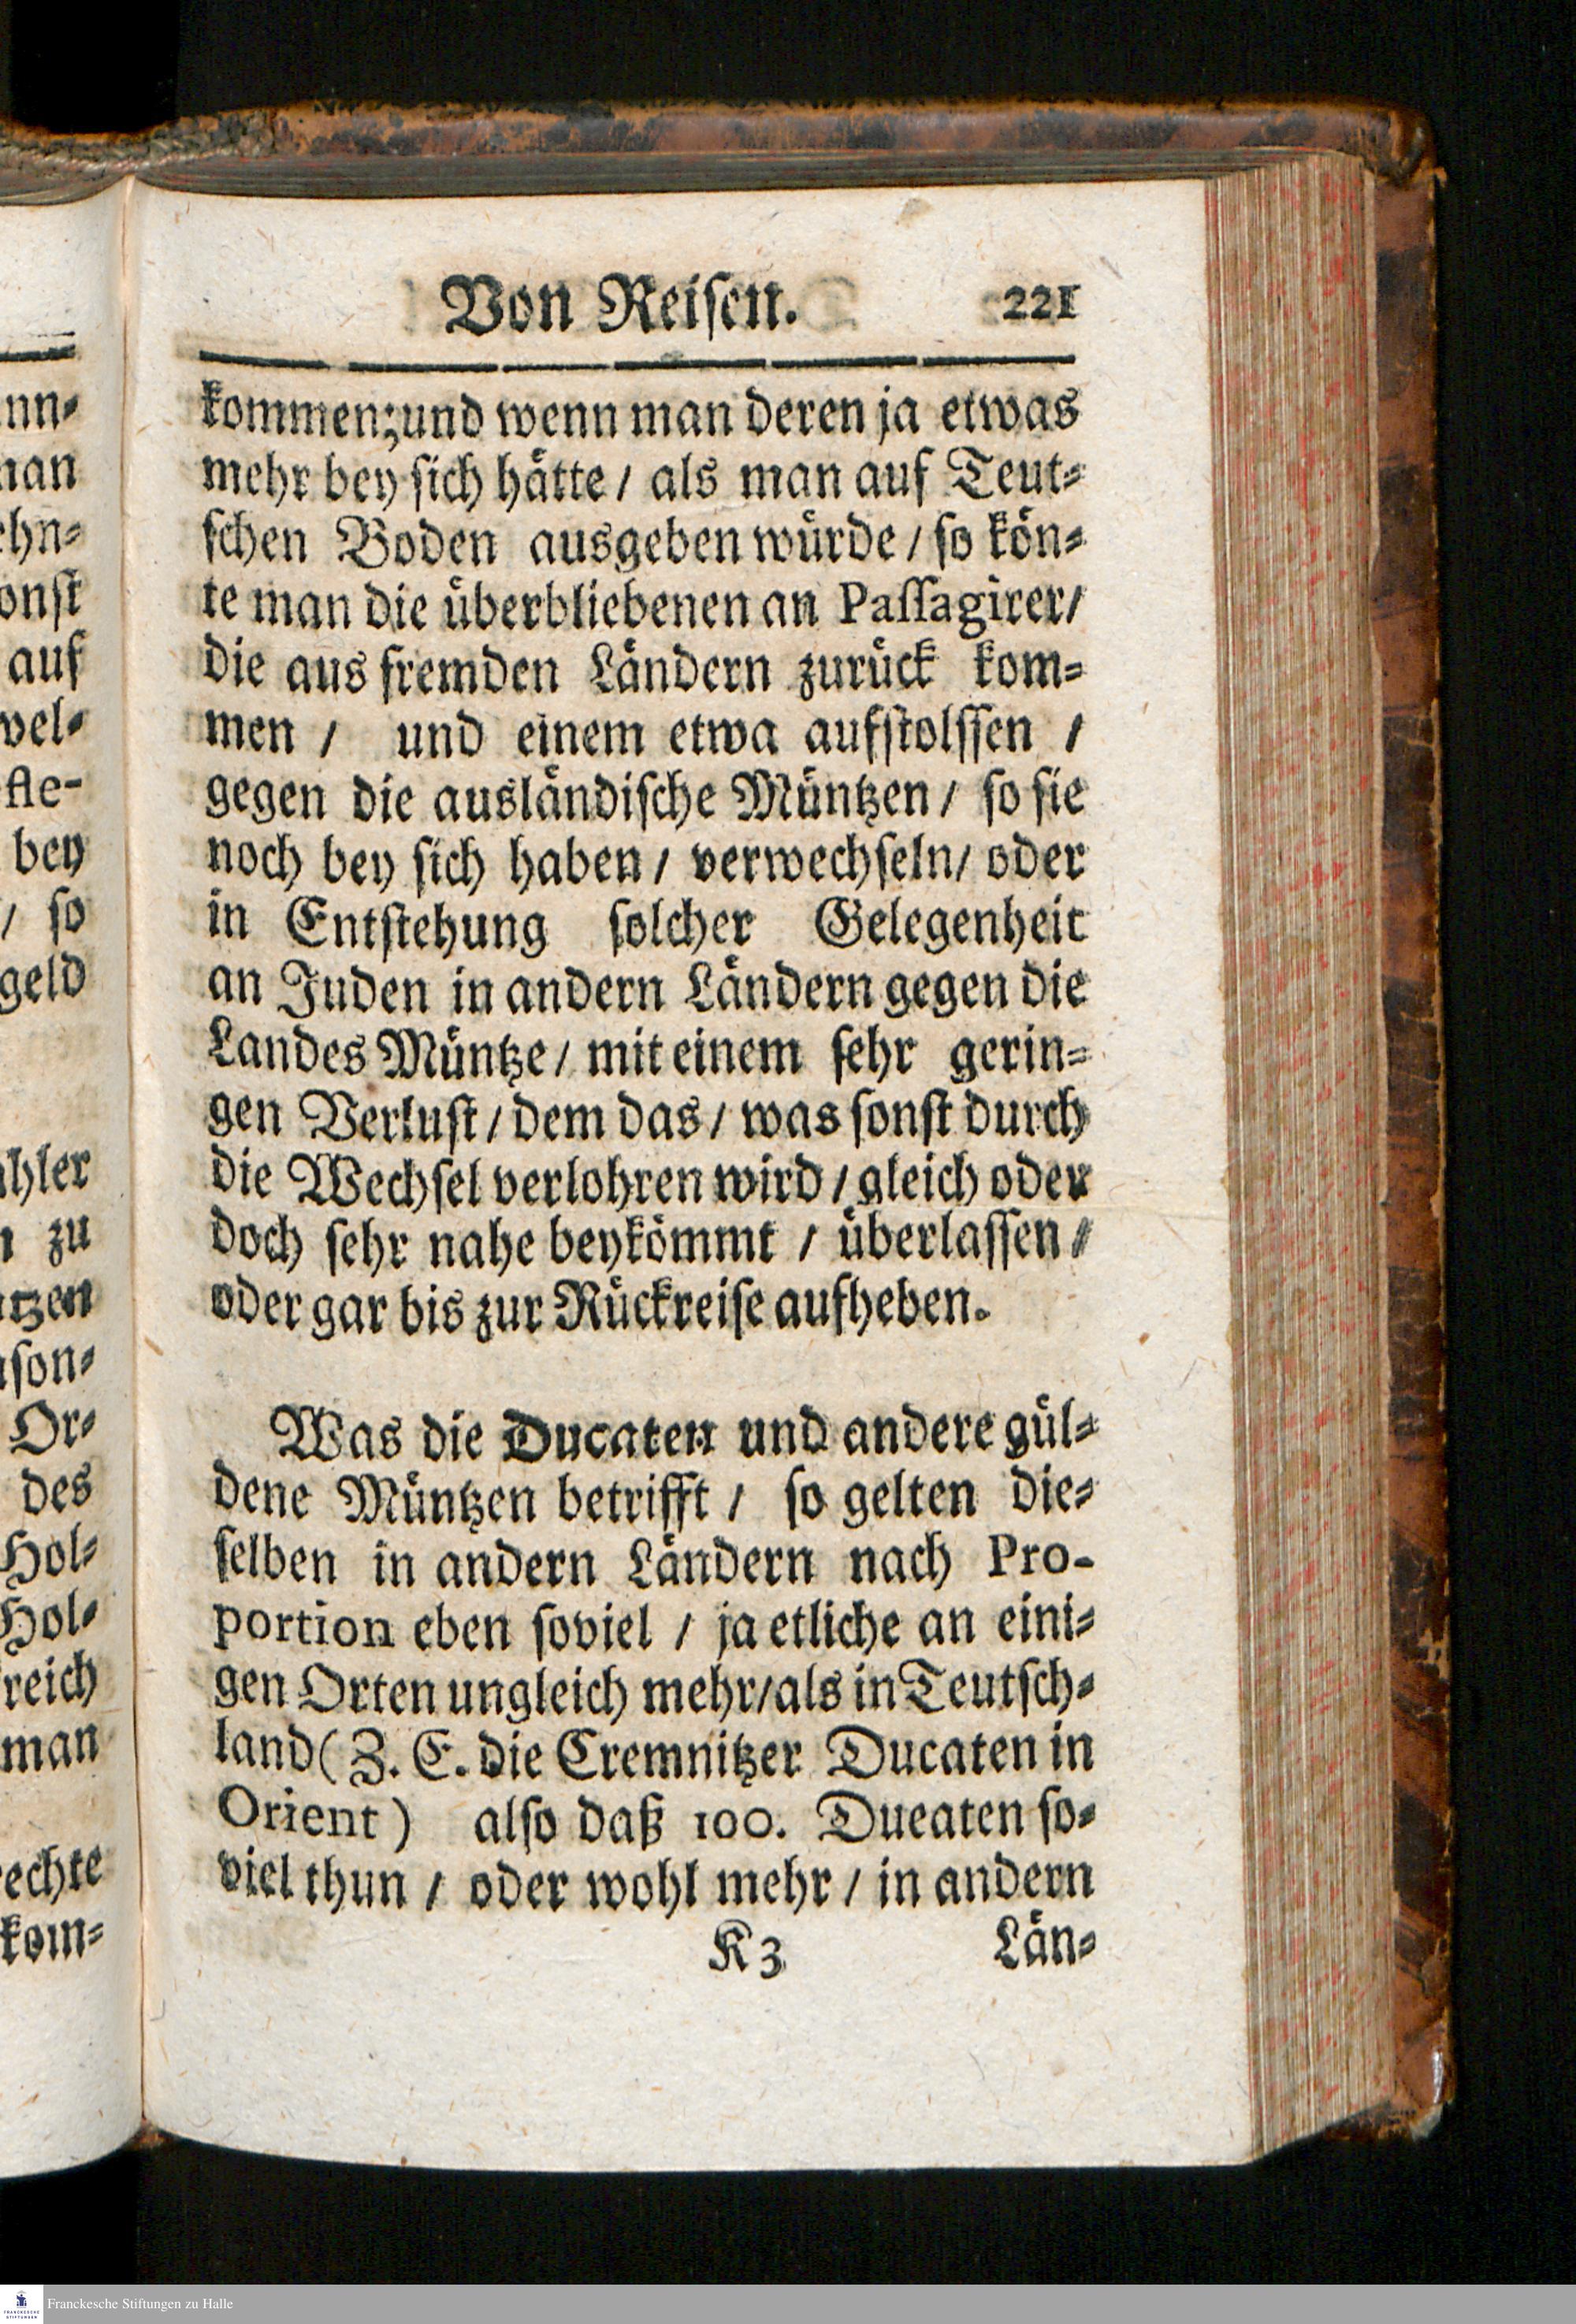 Von Reisen. 221
kommen; und wenn man deren ja etwas
mehr bey sich hätte / als man auf Teut-
schen Boden ausgeben würde / so kön-
te man die überbliebenen an Passagirer/
die aus fremden Ländern zurück kom-
men / und einem etwa aufstolssen /
gegen die ausländische Müntzen / so sie
noch bey sich haben / verwechseln / oder
in Entstehung solcher Gelegenheit
an Juden in andern Ländern gegen die
Landes Müntze / mit einem sehr gerin-
gen Verlust / dem das / was sonst durch
die Wechsel verlohren wird / gleich oder
doch sehr nahe beykömmt / überlassen /
oder gar bis zur Rückreise aufheben.
Was die Ducaten und andere gül-
dene Müntzen betrifft / so gelten die-
selben in andern Ländern nach Pro-
portion eben soviel / ja etliche an eini-
gen Orten ungleich mehr/als in Teutsch-
land (Z. E. die Cremnitzer Ducaten in
Orient) also daß 100. Dueaten so-
viel thun / oder wohl mehr / in andern
K 3 Län-
nn-
man
ehn-
onst
auf
wel-
fle-
bey
/ so
geld
ahler
zu
ntzen
son-
Or-
des
Hol-
Hol-
reich
man
echte
kom-
Franckesche Stiftungen zu Halle